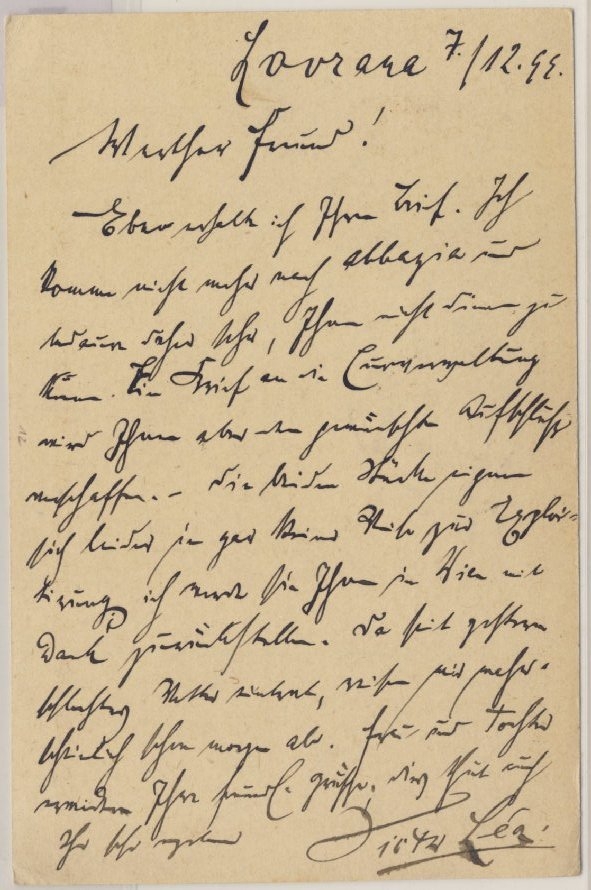 Lovrana 7./12.99.
Werther Freund!
Eben erhalte ich Ihren Brief. Ich
komme nicht mehr nach Abbazia und
bedaure daher sehr, Ihnen nicht dienen zu
können. Ein Brief an die Curverwaltung
wird Ihnen aber den gewünschten Aufschluss
verschaffen. – Die beiden Stücke eignen
sich leider in gar keiner Weise zur Exploi-
tirung; ich werde sie Ihnen in Wien mit
Dank zurückstellen. Da seit gestern
schlechtes Wetter eintrat, reisen wir wahr-
scheinlich schon morgen ab. Frau und Tochter
erwidern Ihre freundl. Grüsse, dies thut auch
Ihr sehr ergebener Victor Léon.